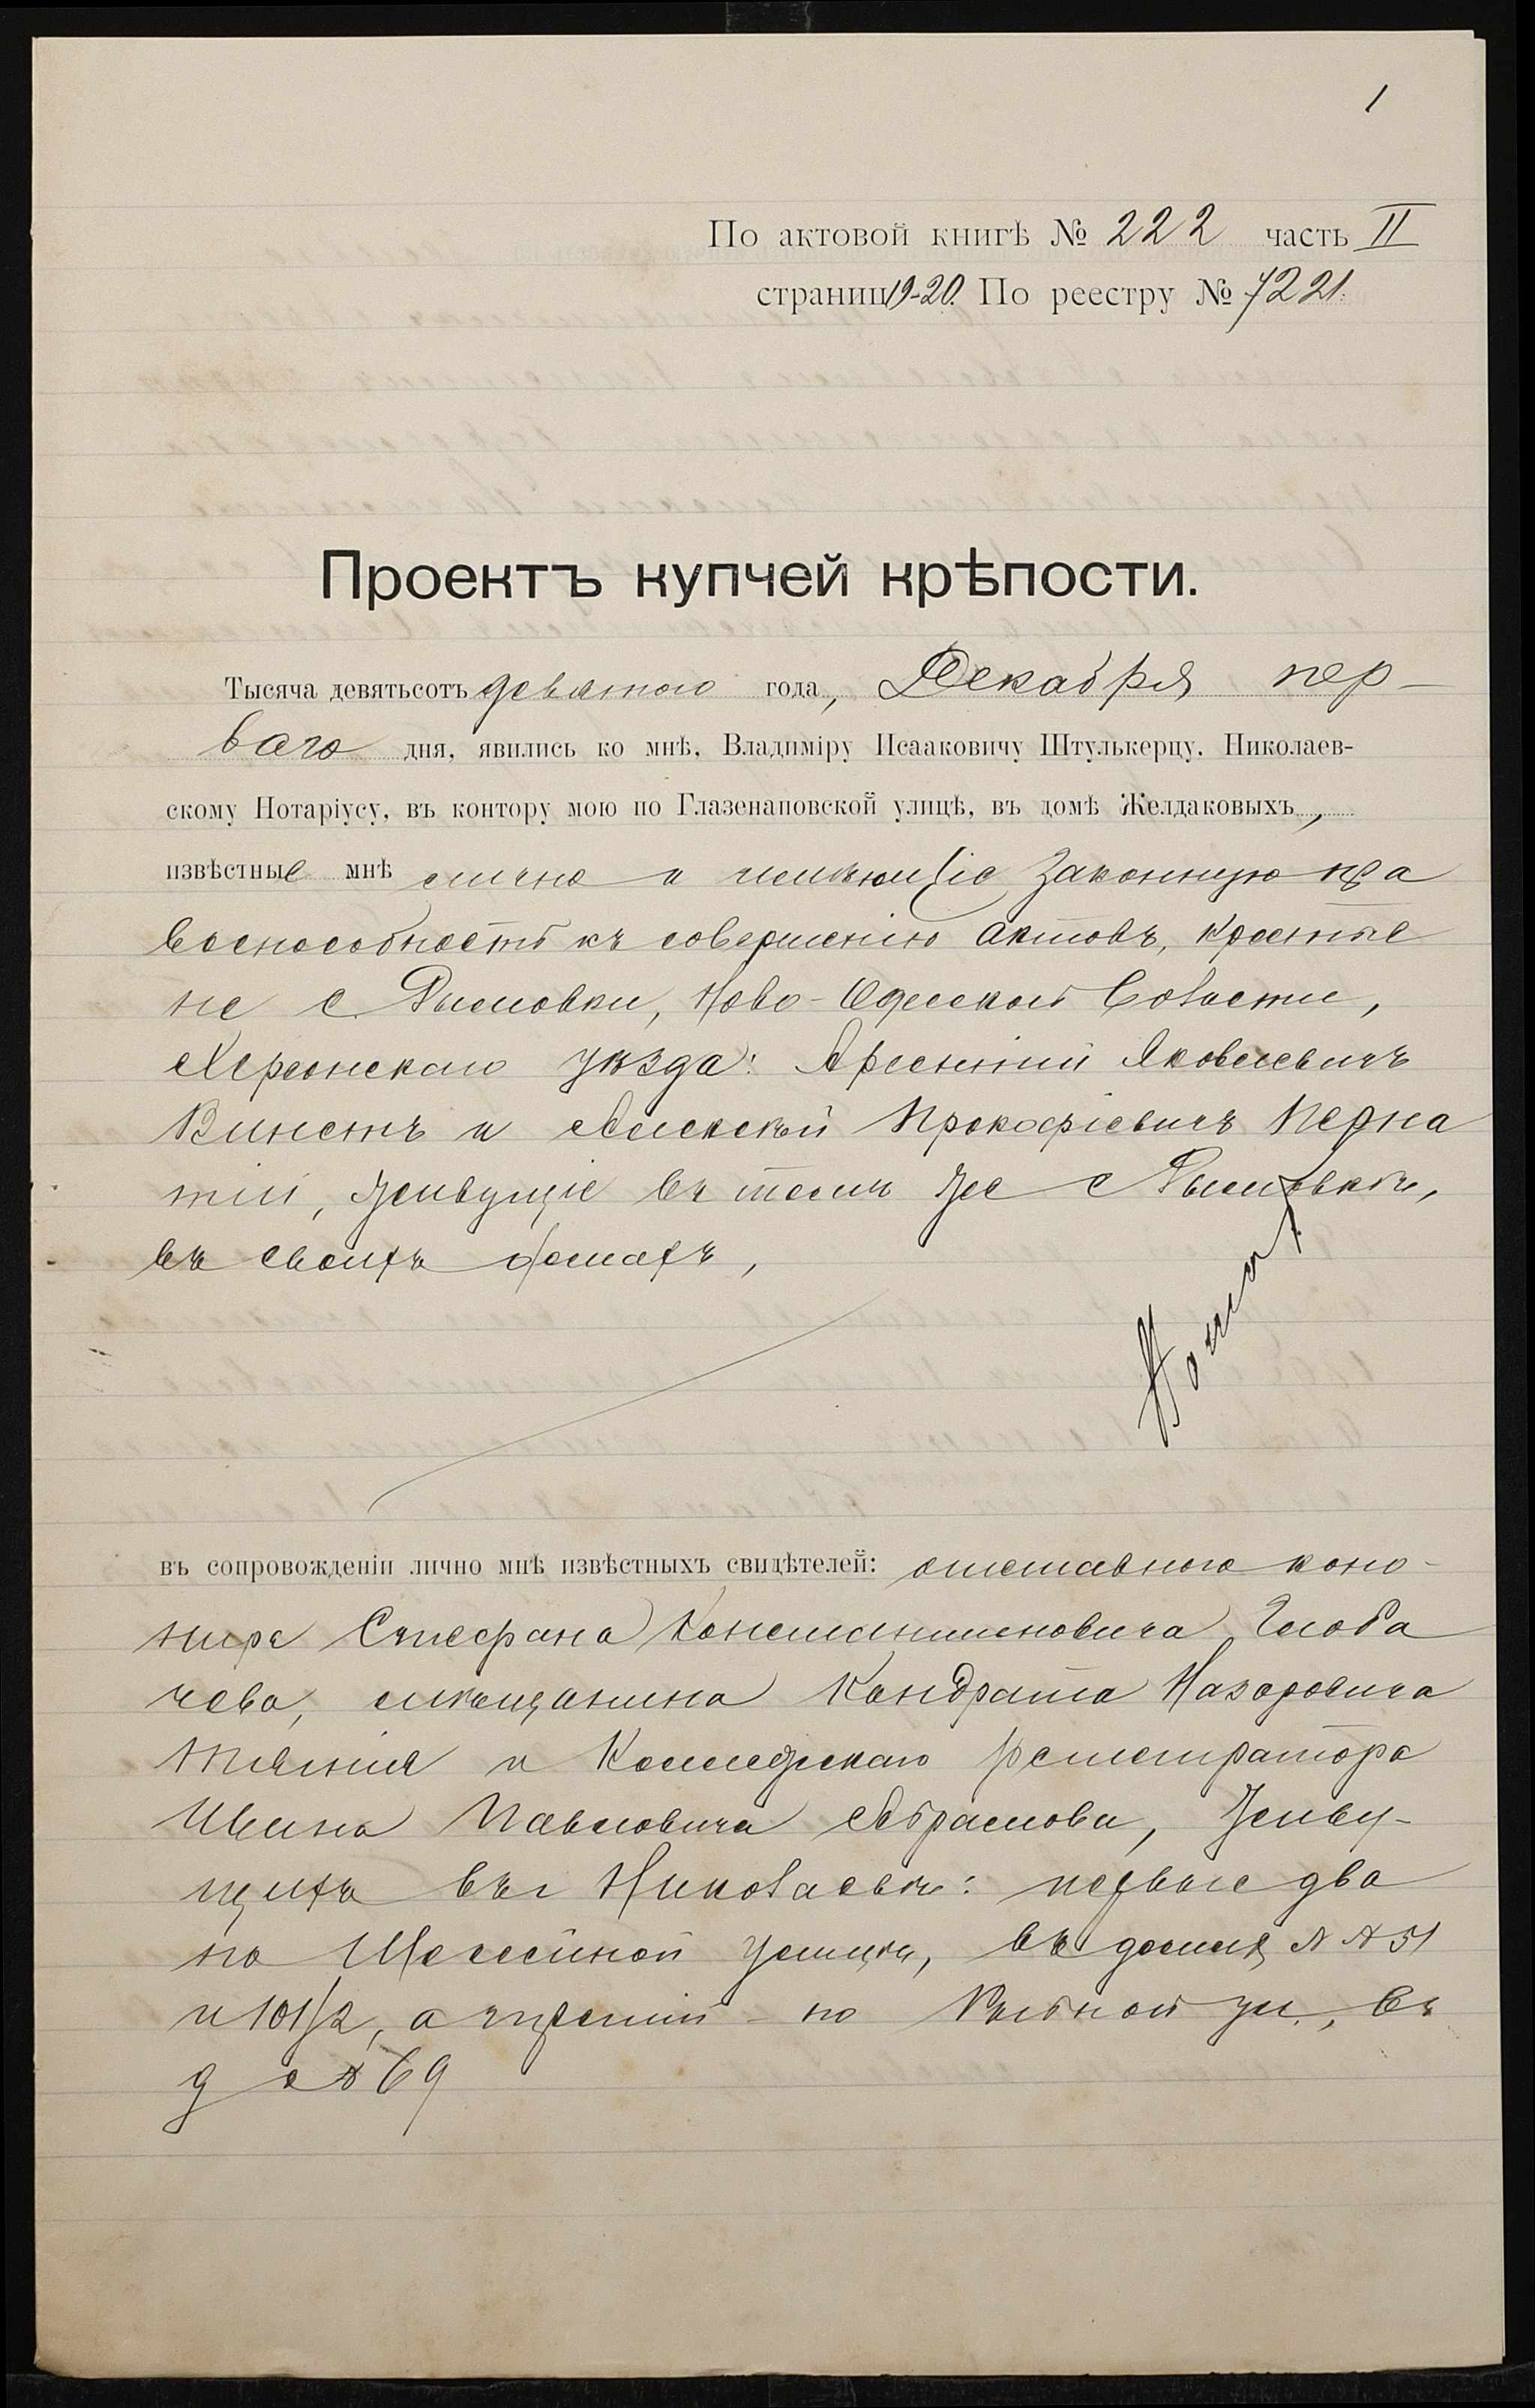 1
По актовой книгѣ № 222 часть II
страниц 19-20. По реестру № 7221.
Проектъ купчей крѣпости.
Тысяча девятьсотъ девятого года, Декабря пер-
ваго дня, явились ко мнѣ, Владиміру Исааковичу Штулькерцу, Николаев-
скому Нотаріусу, въ контору мою по Глазенаповской улицѣ, въ домѣ Желдаковыхъ,
извѣстные мнѣ лично и имѣющіе законную пра
воспособность къ совершенію актовъ, крестья
не с. Ново-Одесской волости,
Херсонскаго уѣзда: Арсентий Яковлевичъ
и Алексѣй Прокофіевичъ Перна
тій, живущіе въ томъ же с
въ своихъ домахъ,
въ сопровожденіи лично мнѣ извѣстныхъ свидѣтелей: отставного кано-
нира Стефана Константиновича Глоба
чева, мѣщанина Кондрата Назаровича
и Коллежскаго регистратора
Ивана Павловича Абрамова, живу-
щихъ въ г Николаевѣ: первые два
по улицѣ, въ домахъ № № 51
и 101/2, а третій - по Рыбной ул., въ
д. № 69